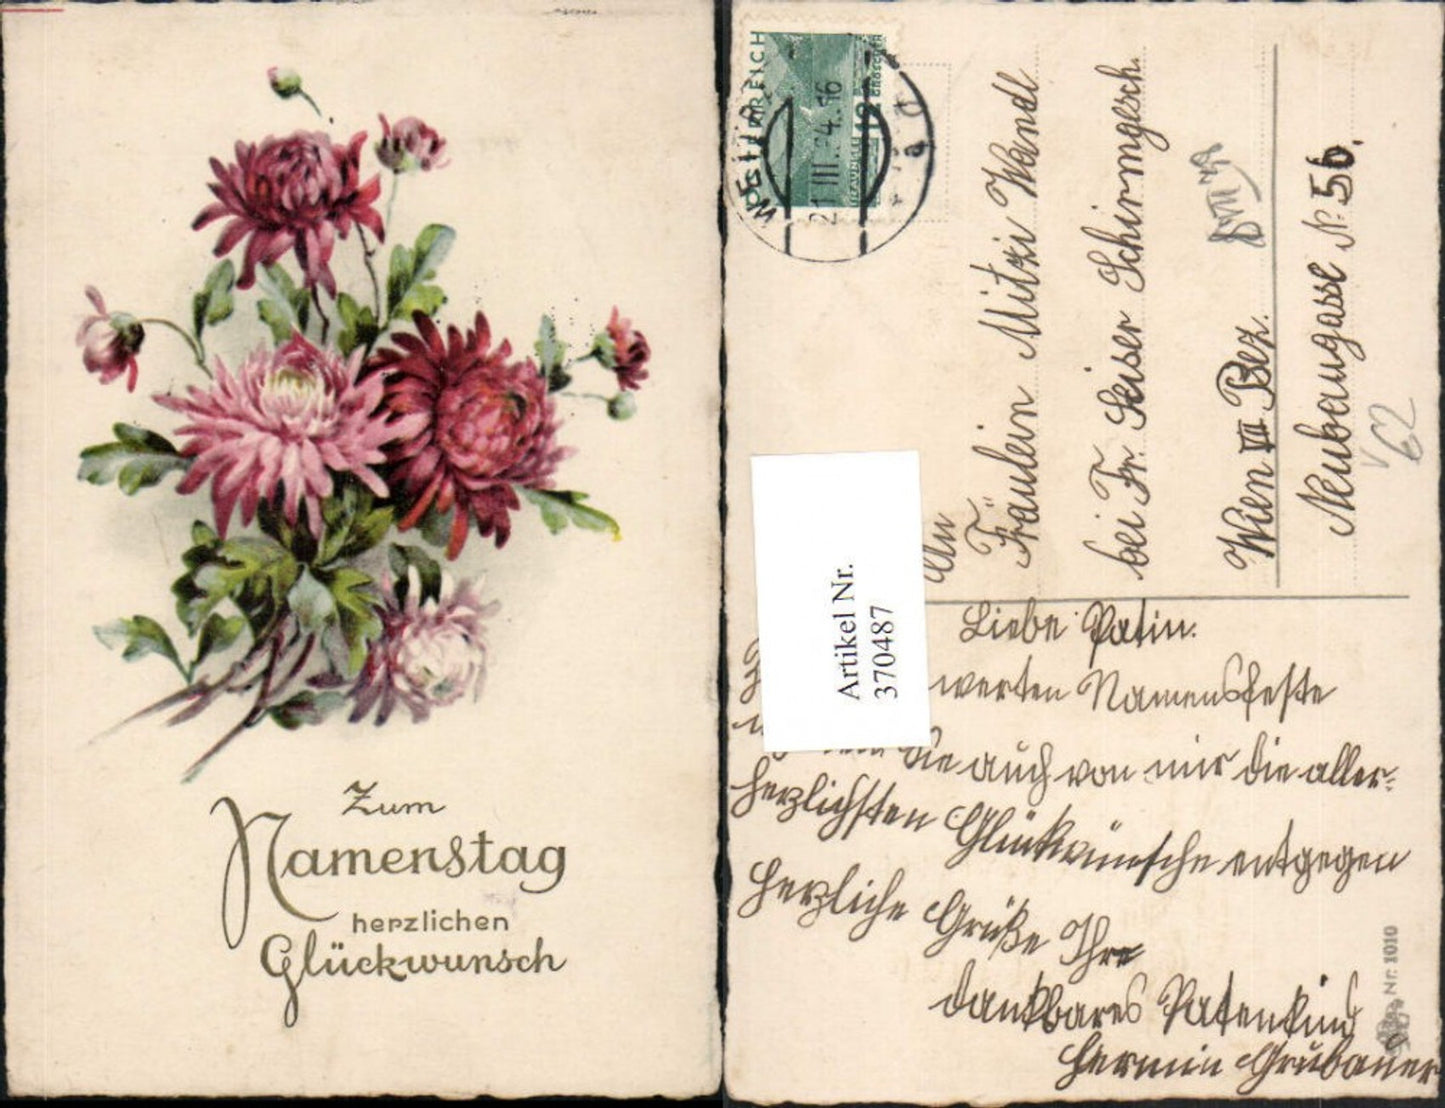 Zum
Namenstag
herzlichen
Glückwunsch
ÖSTERREICH
12 GROSCHEN
21.III.34.*16
An
Fräulein Mitzi Wendl
bei Fr. Seiser Schirmgesch.
Wien VII Bez.
Neubaugasse № 56.
62
Artikel Nr.
370487
Liebe Patin.
werten Namensfeste
Sie auch von mir die aller-
herzlichsten Glückwünsche entgegen
Herzliche Grüße Ihre
dankbares Patenkind
Hermin Grubauer
Nr. 1010